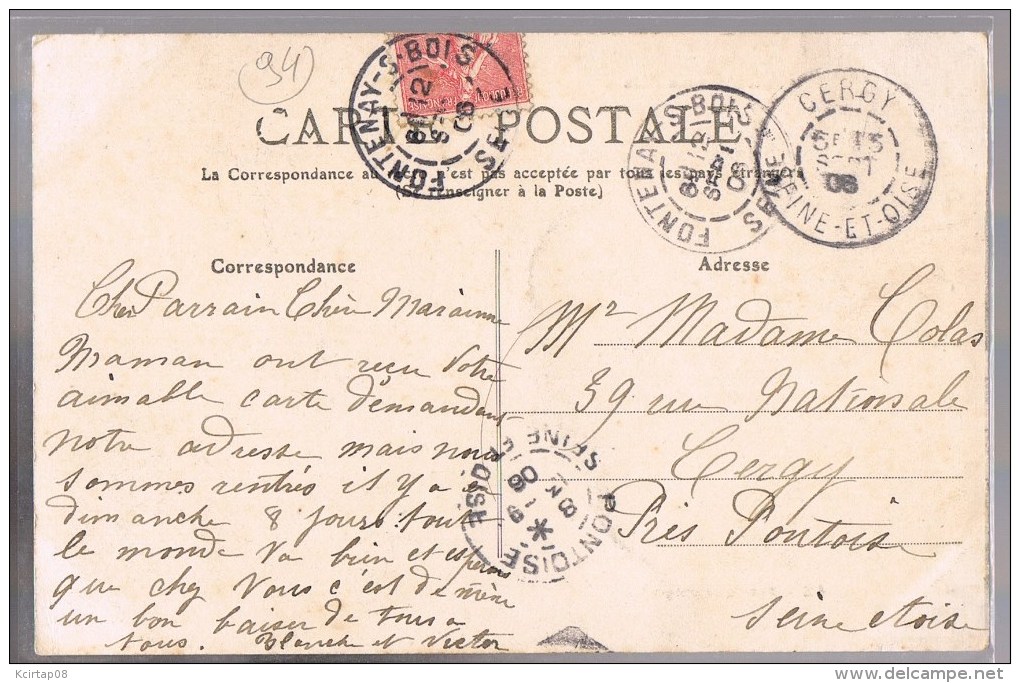 94
CARTE POSTALE
La Correspondance au recto n'est pas acceptée par tous les pays étrangers
(Se renseigner à la Poste)
FONTENAY-S-BOIS
SEINE
FONTENAY-S-BOIS
SEINE
CERGY
SEINE-ET-OISE
08
Correspondance
Cher Parrain Chère Marainne
Maman ont reçu votre
aimable carte démandant
notre adresse mais nous
sommes rentrés il y a eu
dimanche 8 jours tout
le monde va bien et esperons
que chez vous c'est de même
un bon baiser de tous a
tous. Blanche et Victor
Adresse
Mr Madame Colas
39 rue Nationale
Cergy
Près Pontoise
Seine et oise
PONTOISE
SEINE ET OISE
Kcirtap08
delcampe.net